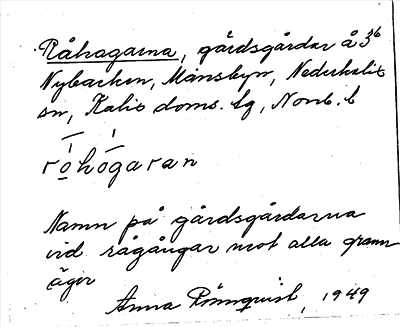 Råhagarna, gårdsgårdar å 3⁶
Nybacken, Månsbyn, Nederkalix
sn, Kalix doms. tg, Norrb. l
rohogaran
Namn på gårdsgårdarna
vid rågångar mot alla grann
ägor
Anna Rönnqvist, 1949